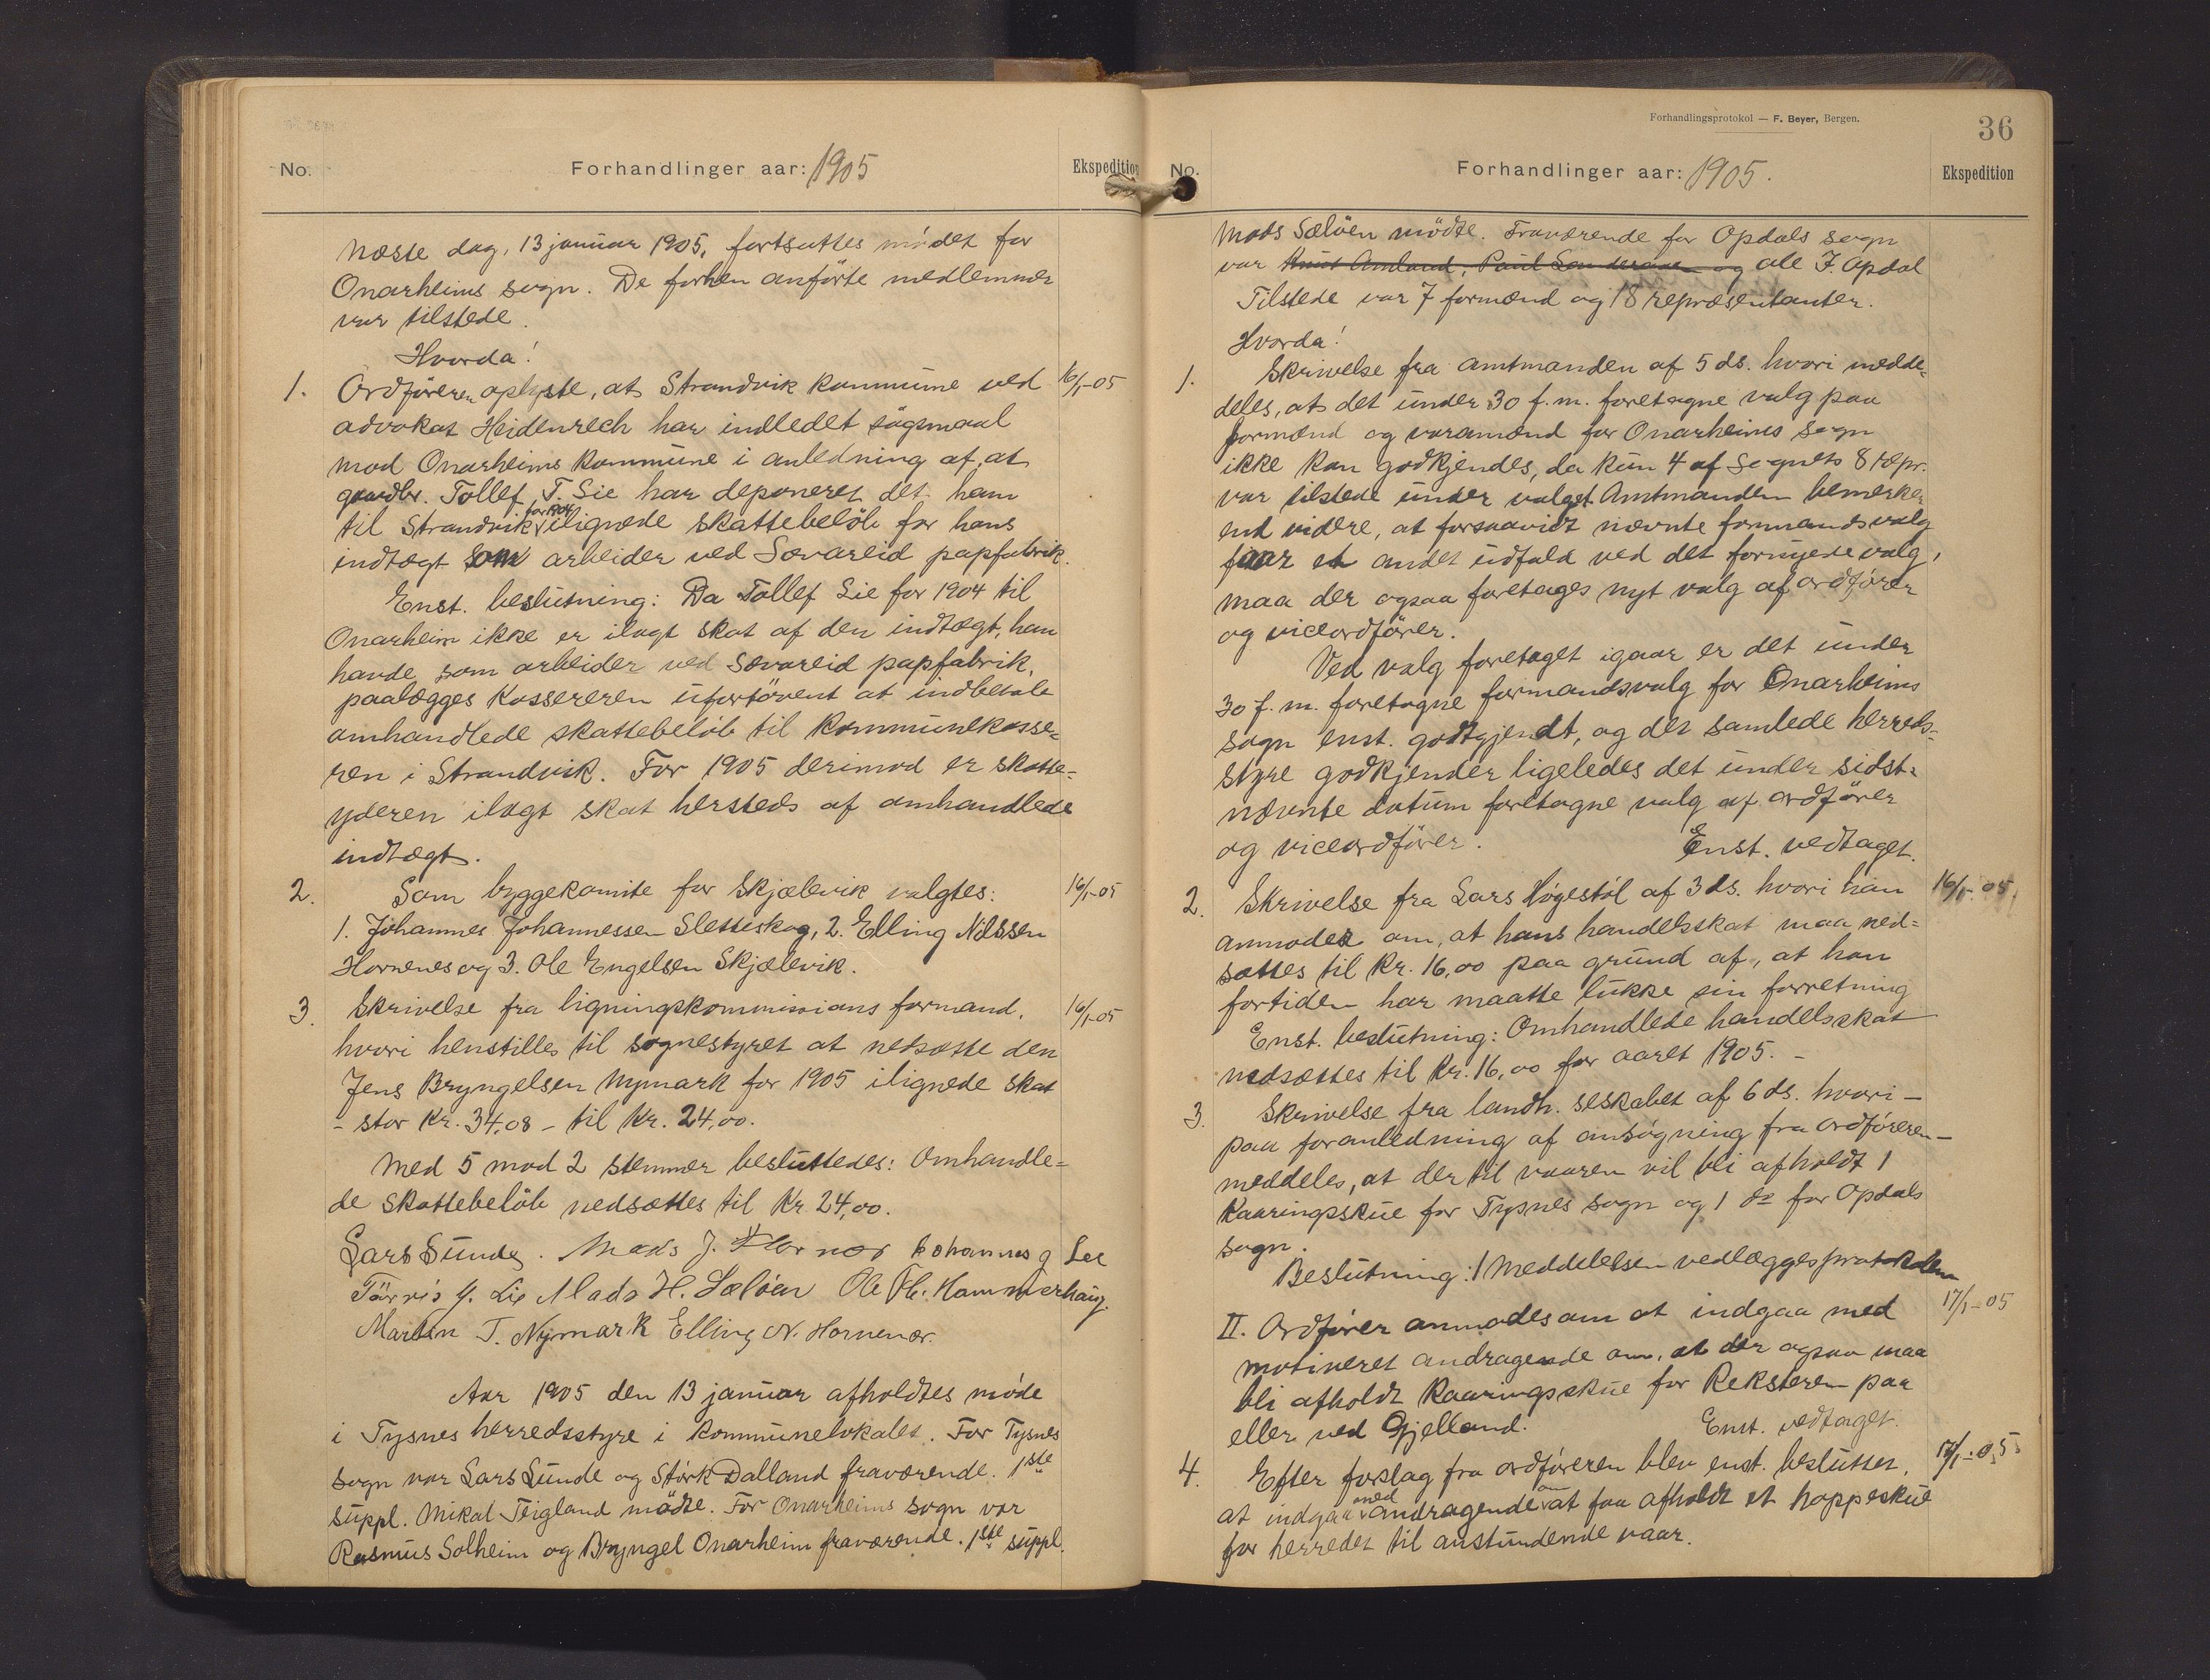 No. Forhandlinger aar: 1905 Ekspedition
Næste dag, 13 januar 1905, fortsattes mödet for
Onarheims sogn. De forhen anförte medlemmer
var tilstede.
Hvorda!
1. Ordföreren oplyste, at Strandvik kommune ved 16/1-05
advokat Heidenrech har indledet sögsmaal
mod Onarheims kommune i anledning af, at
gaardbr. Tollef T. Lie har deponeret det ham
til Strandvik for 1904 ilignede skattebelöb for hans
indtægt som arbeider ved Sævareid papfabrik.
Enst. beslutning: Da Tollef Lie for 1904 til
Onarheim ikke er ilagt skat af den indtægt, han
havde som arbeider ved Sævareid papfabrik,
paalægges kassereren ufortövent at indbetale
omhandlede skattebelöb til kommunekasse-
ren i Strandvik. For 1905 derimod er skatte-
yderen ilagt skat hersteds af omhandlede
indtægt.
2. Som byggekomite for Skjælevik valgtes: 16/1-05
1. Johannes Johannessen Sletteskog, 2. Elling Nilssen
Hornenes og 3. Ole Engelsen Skjælevik.
3. Skrivelse fra ligningskommissions formand, 16/1-05
hvori henstilles til sognestyret at nedsætte den
Jens Bryngelsen Nymark for 1905 ilignede skat
- stor kr. 34,08 - til kr. 24,00.
Med 5 mod 2 stemmer besluttedes: Omhandle-
de skattebelöb nedsættes til kr 24,00.
Lars Sunde. Mads J. Hornes Johannes J Lee
Törris J. Lie Mads H. Sælöen Ole Hammerhaug.
Marten T. Nymark Elling N. Hornenes.
Aar 1905 den 13 januar afholdtes möde
i Tysnes herredsstyre i kommunelokalet. For Tysnes
sogn var Lars Sunde og Störk Dalland fraværende. 1ste
suppl. Mikal Teigland mödte. For Onarheims sogn var
Rasmus Solheim og Bryngel Onarheim fraværende. 1ste suppl.
Forhandlingsprotokol — F. Beyer, Bergen.
36
No. Forhandlinger aar: 1905. Ekspedition
Mads Sælöen mödte. Fraværende for Opdals sogn
var Knut Amland, Paul Sanderaaen og Ole J. Opdal
Tilstede var 7 formænd og 18 repræsentanter.
Hvorda!
1. Skrivelse fra amtmanden af 5 ds. hvori medde-
deles, at det under 30 f.m. foretagne valg paa
formænd og varamænd for Onarheims sogn
ikke kan godkjendes, da kun 4 af sognets 8 repr.
var tilstede under valget. Amtmanden bemerker
end videre, at forsaavidt nævnte formandsvalg
faar et andet udfald ved det fornyede valg,
maa der ogsaa foretages nyt valg af ordförer
og viceordförer.
Ved valg foretaget igaar er det under
30 f.m. foretagne formandsvalg for Onarheims
sogn enst. godtgjendt, og det samlede herreds-
styre godkjender ligeledes det under sidst-
nævnte datum foretagne valg af ordförer
og viceordförer. Enst. vedtaget.
2. Skrivelse fra Lars Högestöl af 3 ds. hvori han 16/1-05
anmoder om, at hans handelsskat maa ned-
sættes til kr. 16,00 paa grund af, at han
fortiden har maatte lukke sin forretning
Enst. beslutning: Omhandlede handelsskat
nedsættes til kr. 16,00 for aaret 1905. -
3. Skrivelse fra landh. selskabet af 6 ds. hvori -
paa foranledning af ansögning fra ordföreren -
meddeles, at der til vaaren vil bli afholdt 1
kaaringsskue for Tysnes sogn og 1 do for Opdals
sogn.
Beslutning: I Meddelelsen vedlægges protokolen
II. Ordförer anmodes om at indgaa med 17/1-05
motiveret andragende om, at der ogsaa maa
bli afholdt kaaringsskue for Reksteren paa
eller ved Gjelland. Enst. vedtaget.
4. Efter forslag fra ordföreren blev enst. besluttet, 17/1-05
at indgaa med andragende om at faa afholdt et hoppeskue
for herredet til anstundende vaar.